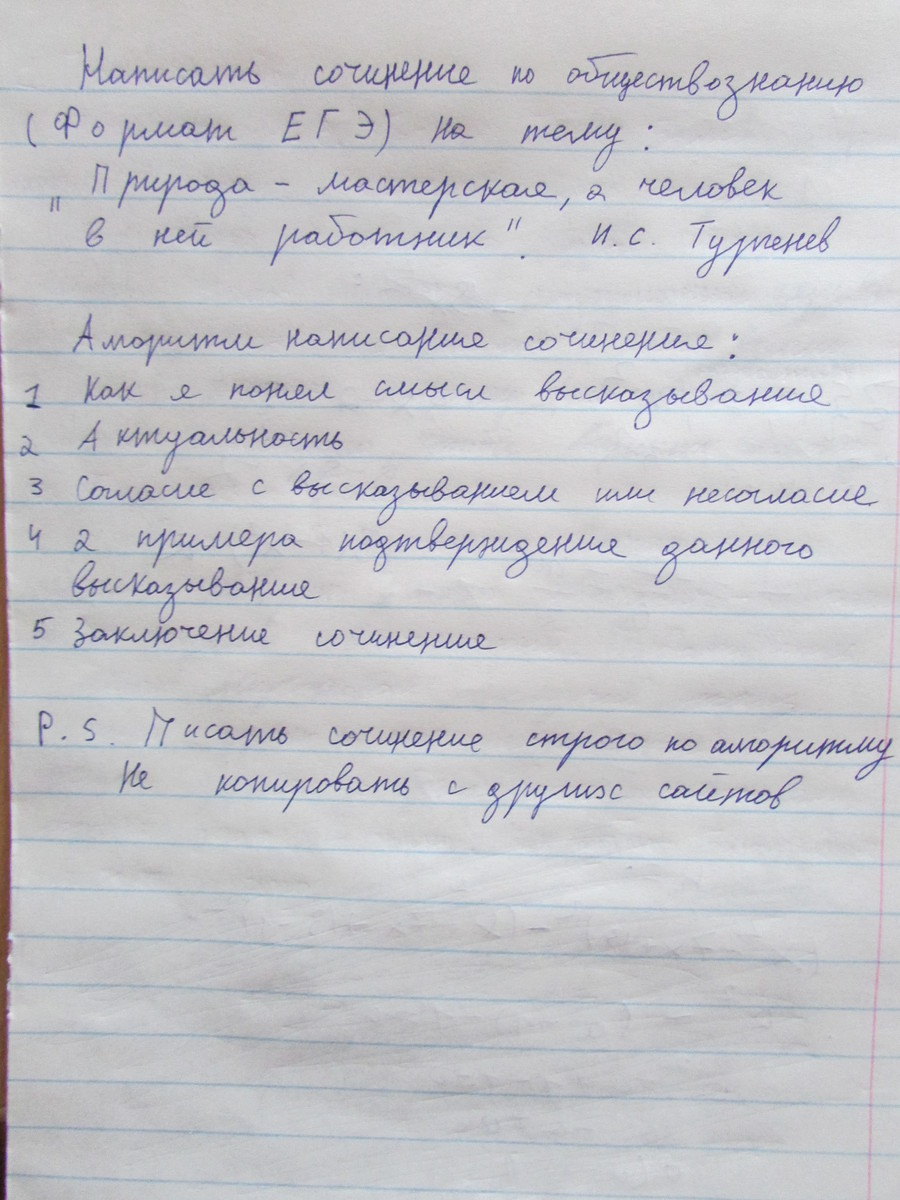 Написать сочинение по обществознанию
(Формат ЕГЭ) на тему:
"Природа - мастерская, а человек
в ней работник". И.С. Тургенев
Алгоритм написания сочинения:
1 Как я понял смысл высказывания
2 Актуальность
3 Согласие с высказыванием или несогласие
4 2 примера подтверждение данного
высказывания
5 Заключение сочинения
P.S. Писать сочинение строго по алгоритму
Не копировать с других сайтов